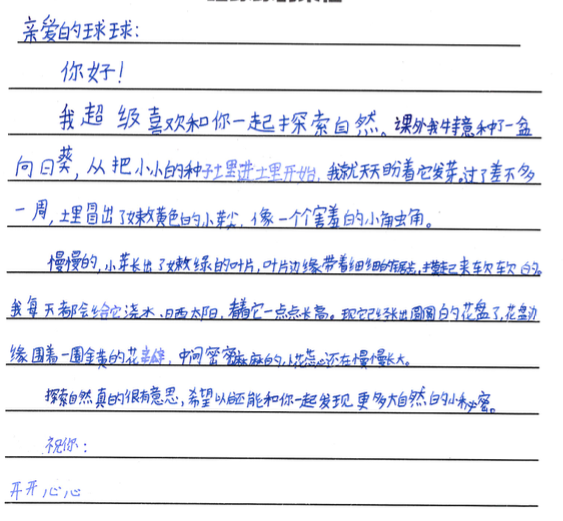 亲爱的球球：
你好！
我超级喜欢和你一起探索自然。课外我特意种了一盆
向日葵，从把小小的种子土里进土里开始，我就天天盼着它发芽。过了差不多
一周，土里冒出了嫩黄色的小芽尖，像一个个害羞的小角虫角。
慢慢的，小芽长出了嫩绿的叶片，叶片边缘带着细细的锯齿，摸起来软软的。
我每天都会给它浇水、日西太阳，看着它一点点长高。现它已经长出圆圆的花盘了，花盘边
缘围着一圈金黄的花，中间密密麻麻的小花蕊还在慢慢长大。
探索自然真的很有意思，希望以后还能和你一起发现更多大自然的小秘密。
祝你：
开开心心